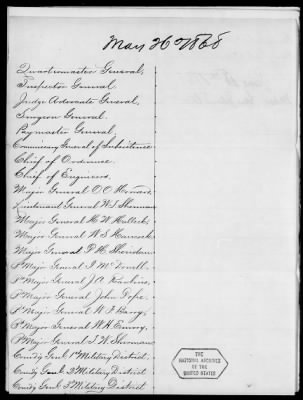 May 26 1868
Quartermaster General,
Inspector General,
Judge Advocate General,
Surgeon General.
Paymaster General,
Commissary General of Subsistence
Chief of Ordnance.
Chief of Engineers.
Major General O.O. Howard.
Lieutenant General W.T. Sherman
Major General H.W. Halleck.
Major General W.S. Hancock
Major General P.H. Sheridan
Major General I. McDowell
Major General J.A.
Major General John Pope.
Major General
Major General W.H. Emory.
Major General T.W. Sherman
Comdg Genl. 1st Military District.
Comdg Genl. 2d Military District
Comdg Genl. 3d Military District
THE
NATIONAL ARCHIVES
OF THE
UNITED STATES